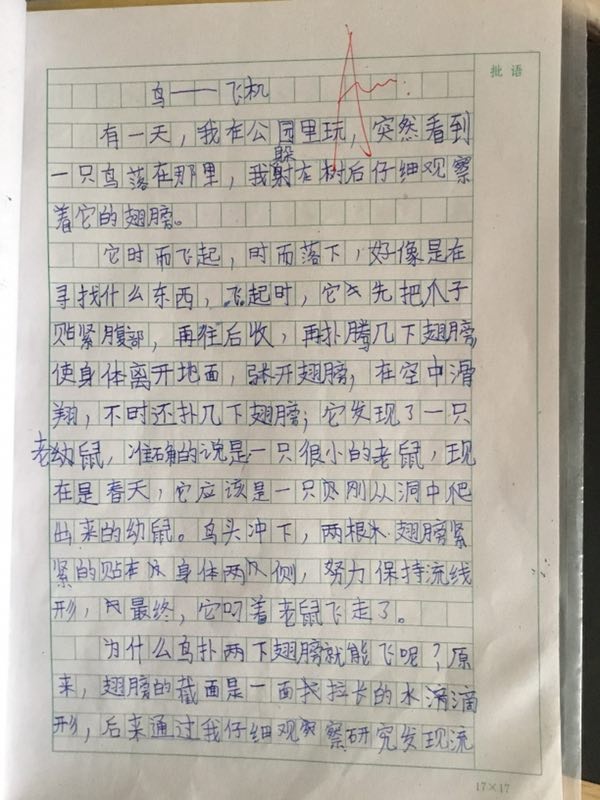 批语
鸟——飞机
有一天，我在公园里玩，突然看到
一只鸟落在那里，我躲在树后仔细观察
着它的翅膀。
它时而飞起，时而落下，好像是在
寻找什么东西，飞起时，它先把爪子
贴紧腹部，再往后收，再扑腾几下翅膀，
使身体离开地面，张开翅膀，在空中滑
翔，不时还扑几下翅膀；它发现了一只
老幼鼠，准确的说是一只很小的老鼠，现
在是春天，它应该是一只刚从洞中爬
出来的幼鼠。鸟头冲下，两根翅膀紧
紧的贴在身体两侧，努力保持流线
形，最终，它叼着老鼠飞走了。
为什么鸟扑两下翅膀就能飞呢？原
来，翅膀的截面是一面拉长的水滴
形，后来通过我仔细观察研究发现流
17×17